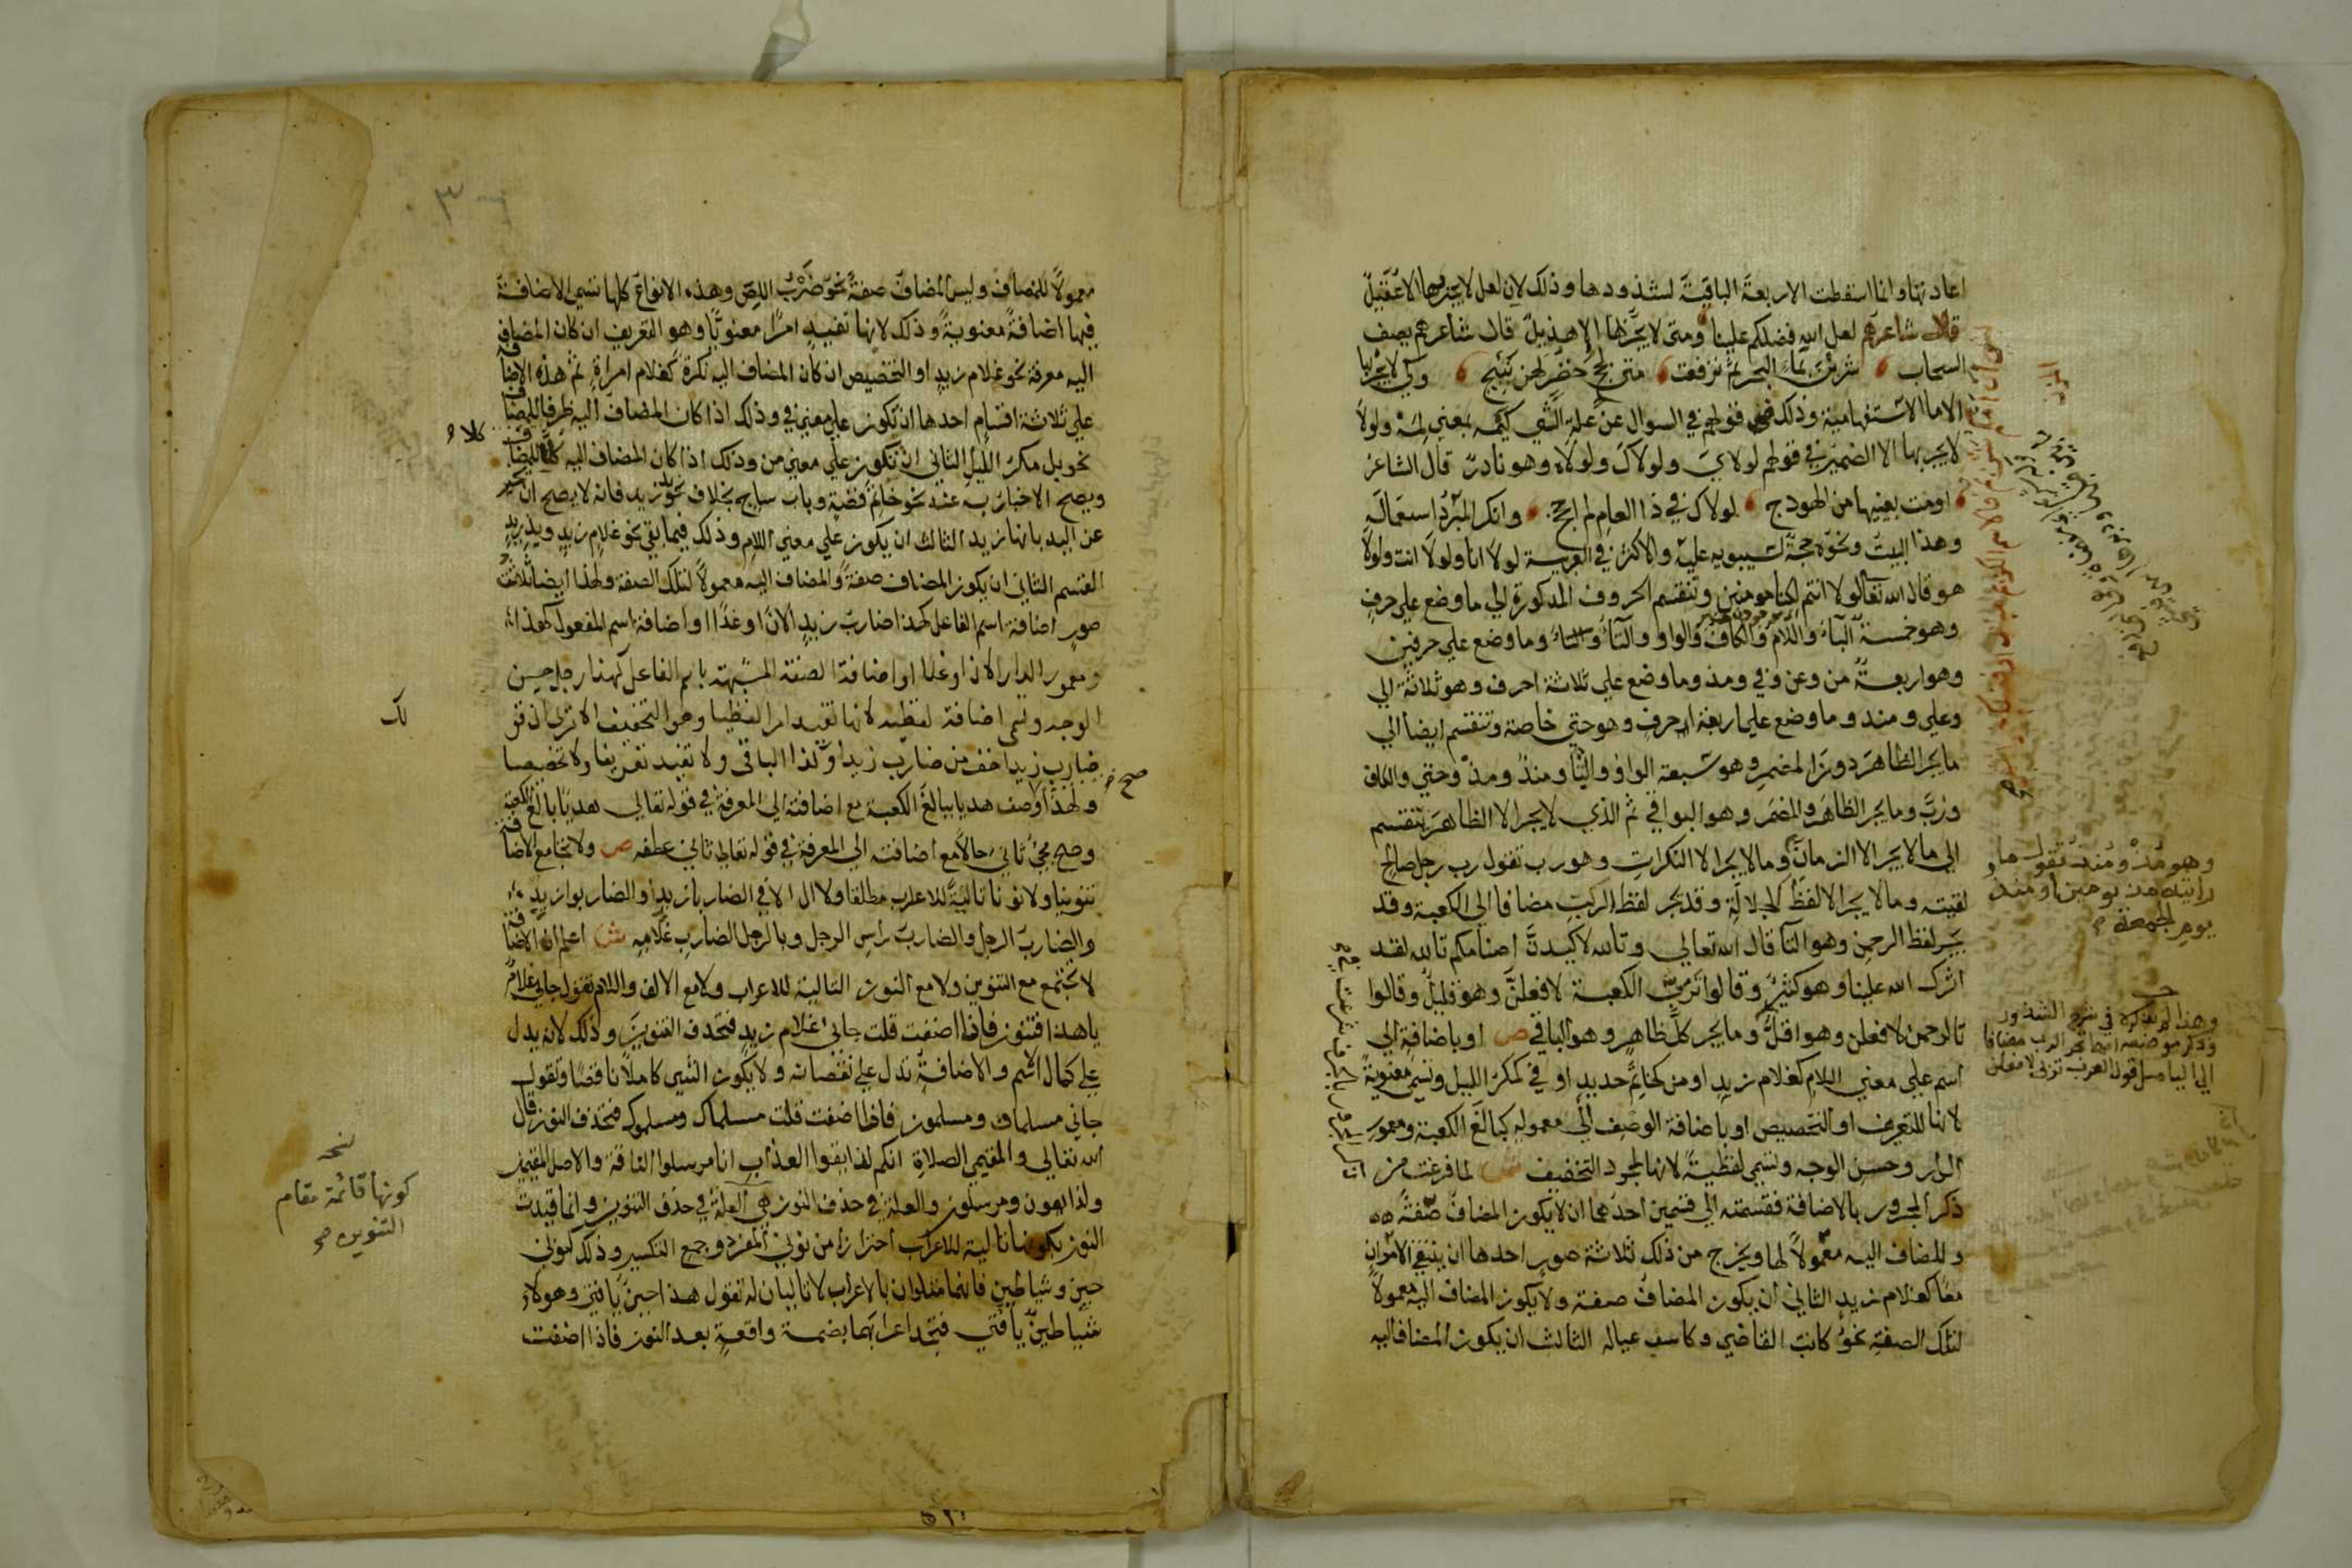 اعادتها وانما اسقطت الاربعة الباقية لشذوذها وذلك لان لعل لا يجر بها الا عقيل
قال شاعرهم لعل الله فضلكم علينا ومتى لا يجر بها الا هذيل قال شاعرهم يصف
السحاب شربن بماء البحر ثم ترفعت متى لجج خضر لهن نئيج وكي لا يجر بها
الا ما الاستفهامية وذلك في قولهم في السوال عن علة الشي كيمه بمعنى لمه ولولا
لا يجر بها الا الضمير في قولهم لولاي ولولاك ولولاه وهو نادر قال الشاعر
اومت بعينيها من الهودج لولاك في ذا العام لم احجج وانكر المبرد استعماله
وهذا البيت ونحوه حجة لسيبويه عليه والاكثر في العربية لولا انا ولولا انت ولولا
هو قال الله تعالى لولا انتم لكنا مومنين وتنقسم الحروف المذكورة الي ما وضع علي حرف
وهو خمسة الباء واللام والكاف والواو والتاء وما وضع علي حرفين
وهو اربعة من وعن وفي ومذ وما وضع علي ثلاثة احرف وهو ثلاثة الي
وعلي ومنذ وما وضع علي اربعة احرف وهو حتي خاصة وتنقسم ايضا الي
ما يجر الظاهر دون المضمر وهو سبعة الواو والتا ومنذ ومذ وحتي والكاف
ورب وما يجر الظاهر والمضمر وهو البواقي ثم الذي لا يجر الا الظاهر ينقسم
الي ما لا يجر الا الزمان وما لا يجر الا النكرات وهو رب تقول رب رجل صالح
لقيته وما لا يجر الا لفظ الجلالة وقد يجر لفظ الرب مضافا الي الكعبة وقد
يجر لفظ الرحمن وهو التا قال الله تعالي وتالله لاكيدن اصنامكم تالله لقد
اثرك الله علينا وهو كثير وقالوا ترب الكعبة لافعلن وهو قليل وقالوا
تالرحمن لافعلن وهو اقل وما يجر كل ظاهر وهو الباقي ص او باضافة الي
اسم علي معني اللام كغلام زيد او من كخاتم حديد او في كمكر الليل وتسمي معنوية
لانها للتعريف او التخصيص او باضافة الوصف الي معموله كبالغ الكعبة ومعمور
الدار وحسن الوجه وتسمي لفظية لانها لمجرد التخفيف ش لما فرغت من
ذكر المجرور بالاضافة فقسمته الي قسمين احدهما ان لا يكون المضاف صفة
والمضاف اليه معمولا لها ويخرج من ذلك ثلاثة صور احدها ان ينتفي الامران
معا كغلام زيد الثاني ان يكون المضاف صفة ولا يكون المضاف اليه معمولا
لتلك الصفة نحو كاتب القاضي وكاسب عياله الثالث ان يكون المضاف اليه
وهو مذ ومنذ تقول ما
رايته مذ يومين او منذ
يوم الجمعة
معمولا للمضاف وليس المضاف صفة نحو ضرب اللص وهذه الانواع كلها تسمي الاضافة
فيها اضافة معنوية وذلك لانها تفيد امرا معنويا وهو التعريف ان كان المضاف
اليه معرفة نحو غلام زيد او التخصيص ان كان المضاف اليه نكرة كغلام امراة ثم هذه الاضافة
علي ثلاثة اقسام احدها ان تكون علي معني في وذلك اذا كان المضاف اليه ظرفا للمضاف
نحو بل مكر الليل الثاني ان تكون علي معني من وذلك اذا كان المضاف اليه كلا للمضاف
ويصح الاخبار به عنه نحو خاتم فضة وباب ساج بخلاف نحو يد زيد فانه لا يصح ان يخبر
عن اليد بانها زيد الثالث ان يكون علي معني اللام وذلك فيما بقي نحو غلام زيد ويد زيد
القسم الثاني ان يكون المضاف صفة والمضاف اليه معمولا لتلك الصفة ولهذا ايضا ثلاث
صور اضافة اسم الفاعل كهذا ضارب زيد الان او غدا او اضافة اسم المفعول كهذا
معمور الدار الان او غدا او اضافة الصفة المشبهة باسم الفاعل كهذا رجل حسن
الوجه وتسمي اضافة لفظية لانها تفيد امرا لفظيا وهو التخفيف الا ترى ان قو
ضارب زيد اخف من ضارب زيدا وكذا الباقي ولا تفيد تعريفا ولا تخصيصا
ولهذا وصف هديا ببالغ الكعبة مع اضافته الي المعرفة في قوله تعالي هديا بالغ الكعبة
وصح مجي ثاني حالا مع اضافته الي المعرفة في قوله تعالي ثاني عطفه ص ولا تجامع الاضافة
تنوينا ولا نونا تالية للاعراب مطلقا ولا ال الا في الضاربا زيد او الضاربوا زيد
والضارب الرجل والضارب راس الرجل وبالرجل الضارب غلامه ش اعلم ان الاضافة
لا تجتمع مع التنوين ولا مع النون التالية للاعراب ولا مع الالف واللام تقول جاني غلام
يا هذا فتنون فاذا اضفت قلت جاني غلام زيد فتحذف التنوين وذلك لانه يدل
علي كمال الاسم والاضافة تدل علي نقصانه ولا يكون الشي كاملا ناقصا وتقول
جاني مسلمان ومسلمون فاذا اضفت قلت مسلماك ومسلموك فتحذف النون قال
الله تعالي والمقيمي الصلاة انكم لذايقوا العذاب انا مرسلوا الناقة والاصل المقيمين
ولذايقون ومرسلون والعلة في حذف النون هي العلة في حذف التنوين وانما قيدت
النون بكونها تالية للاعراب احترازا من نوني المفرد وجمع التكسير وذلك كنوني
حين وشياطين فانهما متلوان بالاعراب لا تاليان له تقول هذا حين يا فتي وهولاء
شياطين يا فتي فتجد اعرابهما بضمة واقعة بعد النون فاذا اضفت
كلاء
لك
صح
كونها قائمة مقام
التنوين